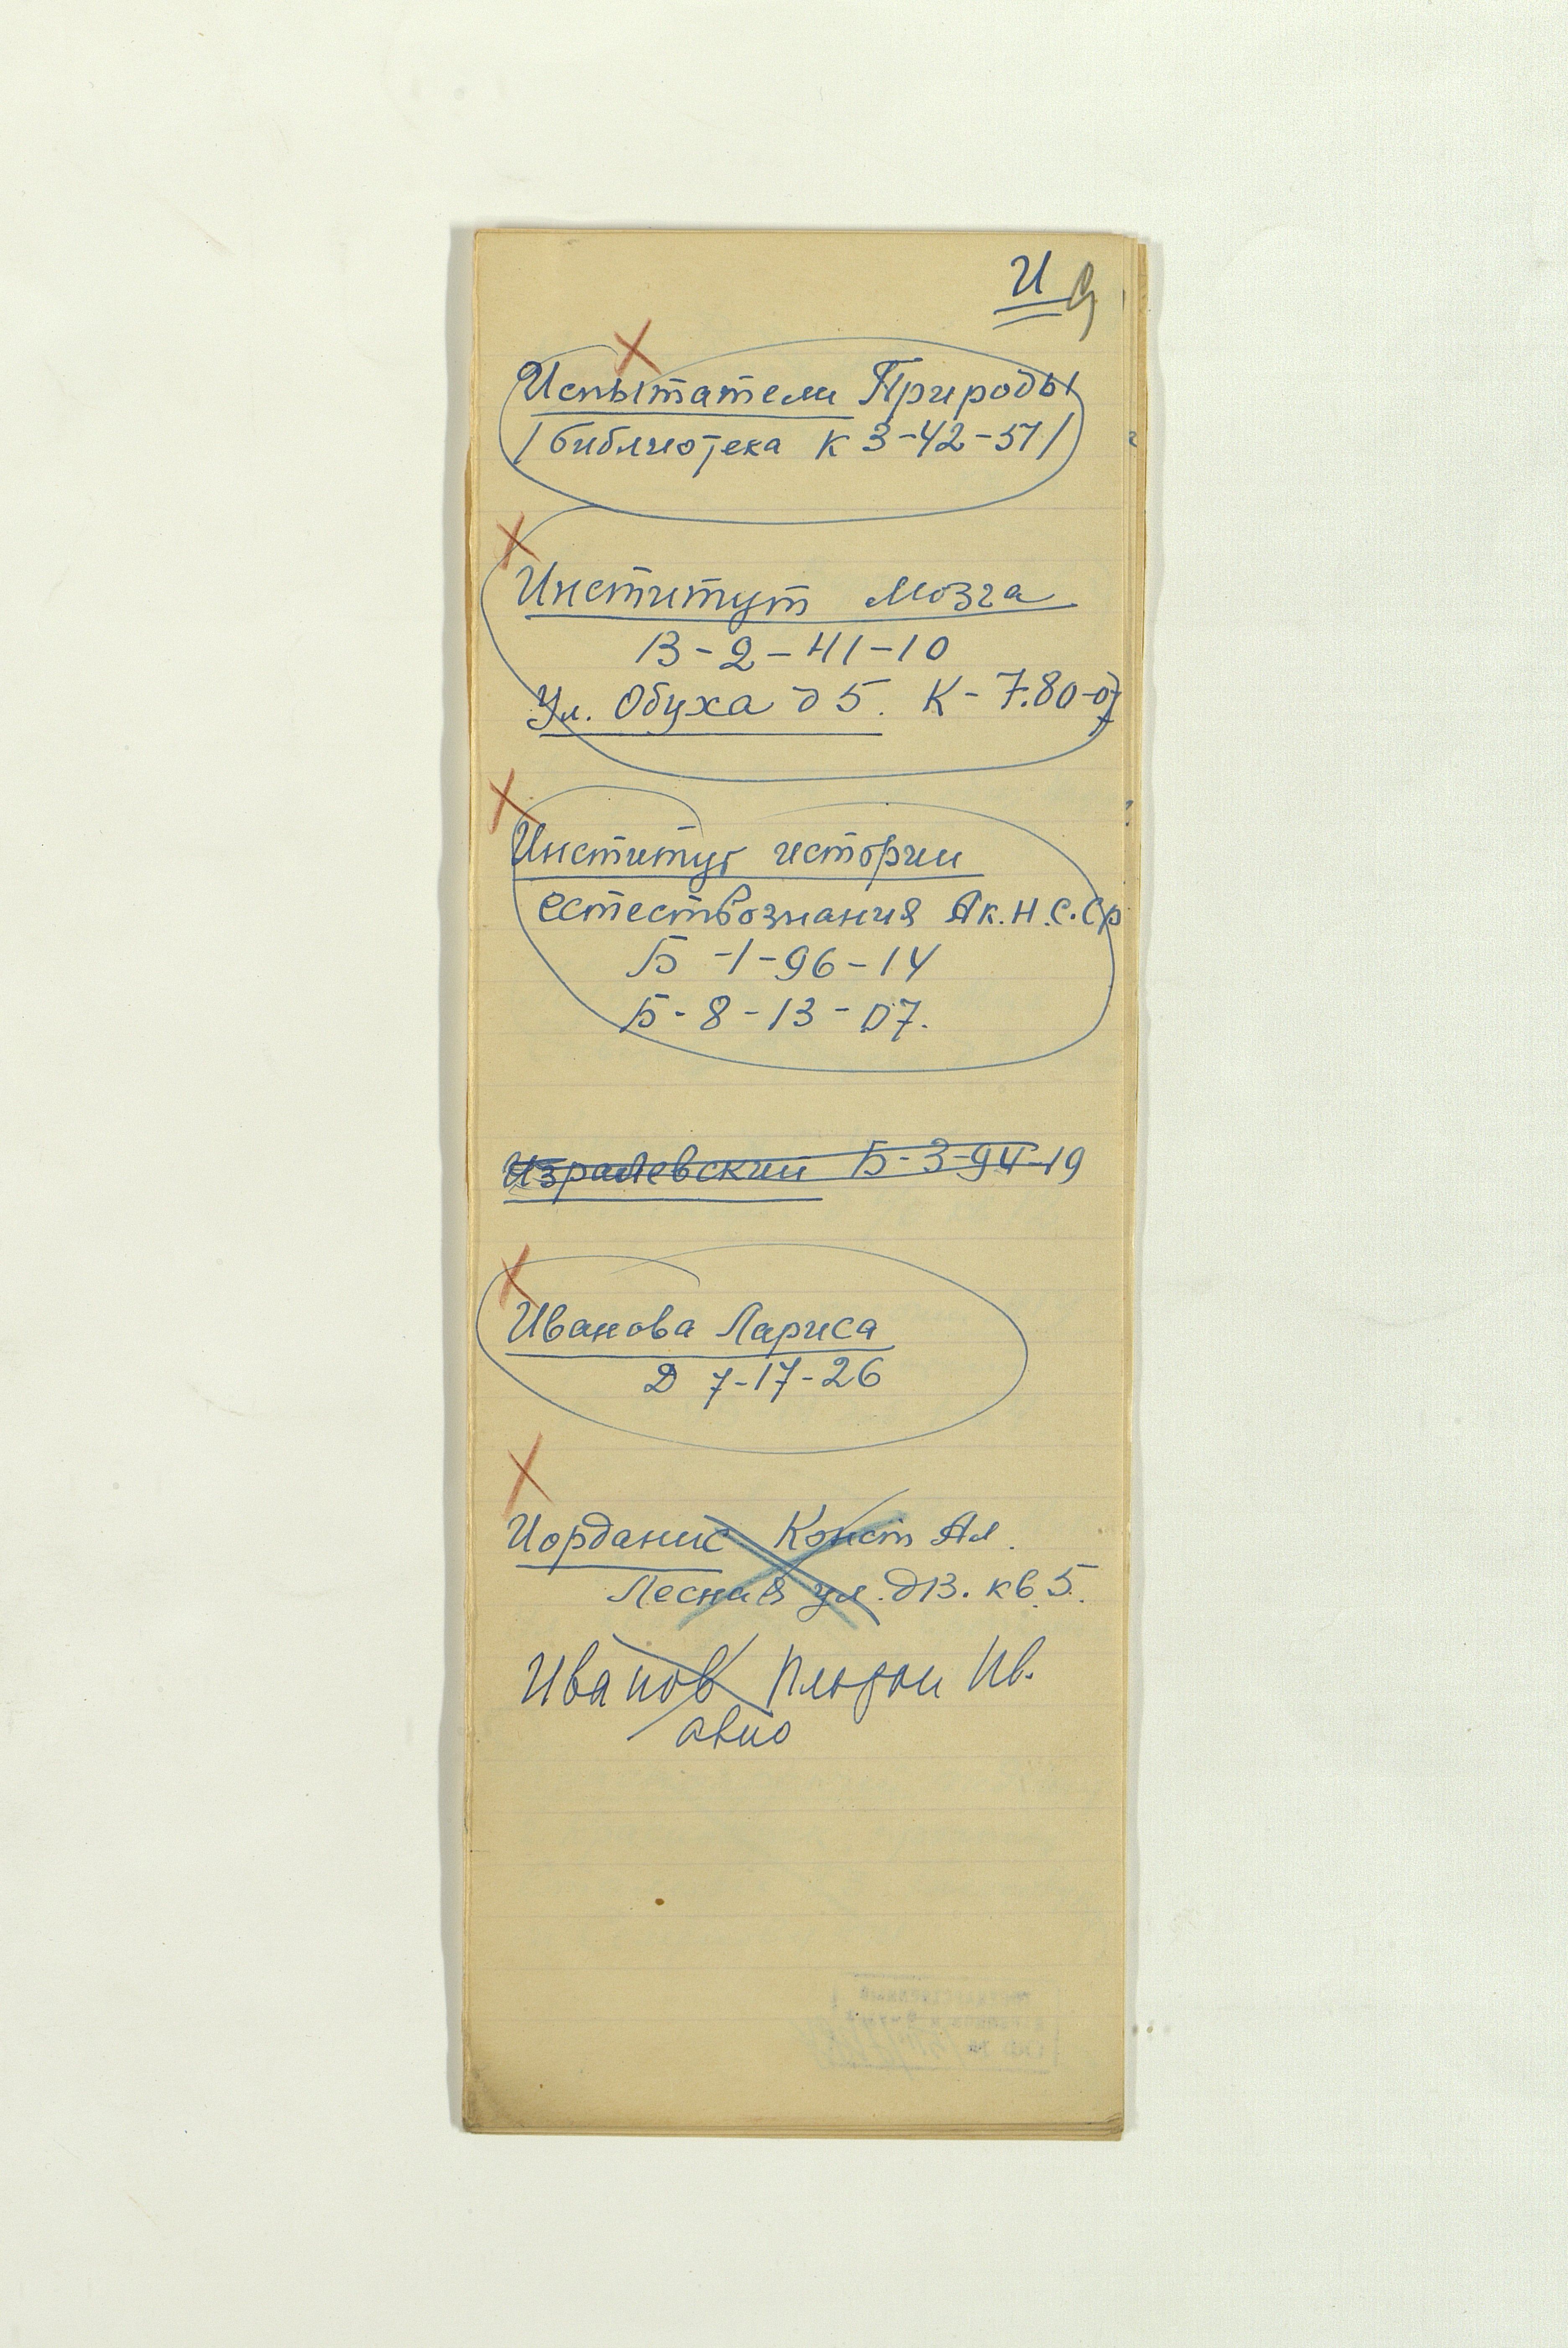 И 9
Испытатели Природы
/библиотека К 3-42-51/
Институт Мозга
В-2-41-10
Ул. Обуха д 5. К-7.80-07
Институт истории
естествознания Ак.Н.С.Ср
Б-1-96-14
Б-8-13-07.
Израилевский Б-3-94-19
Иванова Лариса
Д 7-17-26
Иорданис Конст Ал.
Лесная ул. д13. кв.5.
Иванов Ив.